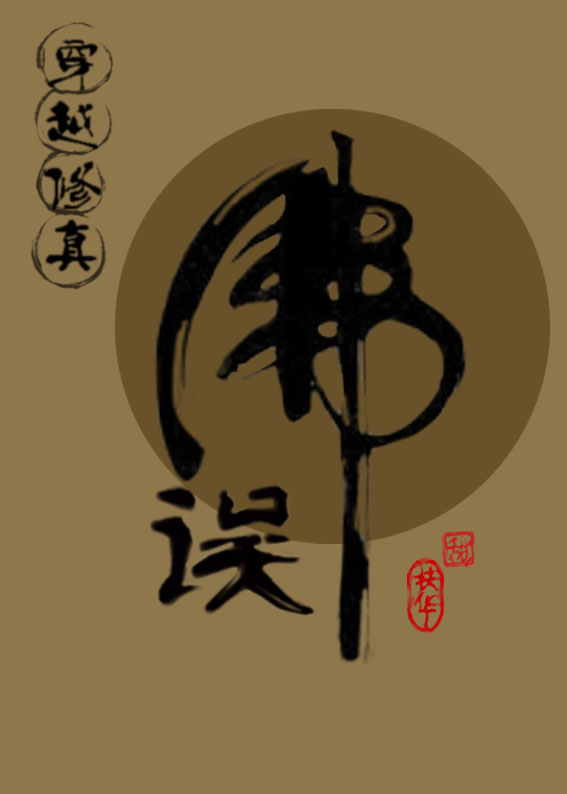 穿越修真
佛
误
扶华